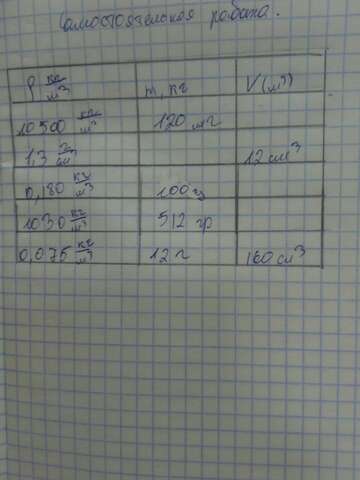 Самостоятельная работа.
ρ кг/м³ m, кг V (м³)
10500 кг/м³ 120 мг
1,3 г/см³ 12 см³
0,180 кг/м³ 100 г
1030 кг/м³ 512 гр
0,075 кг/м³ 12 г 160 см³